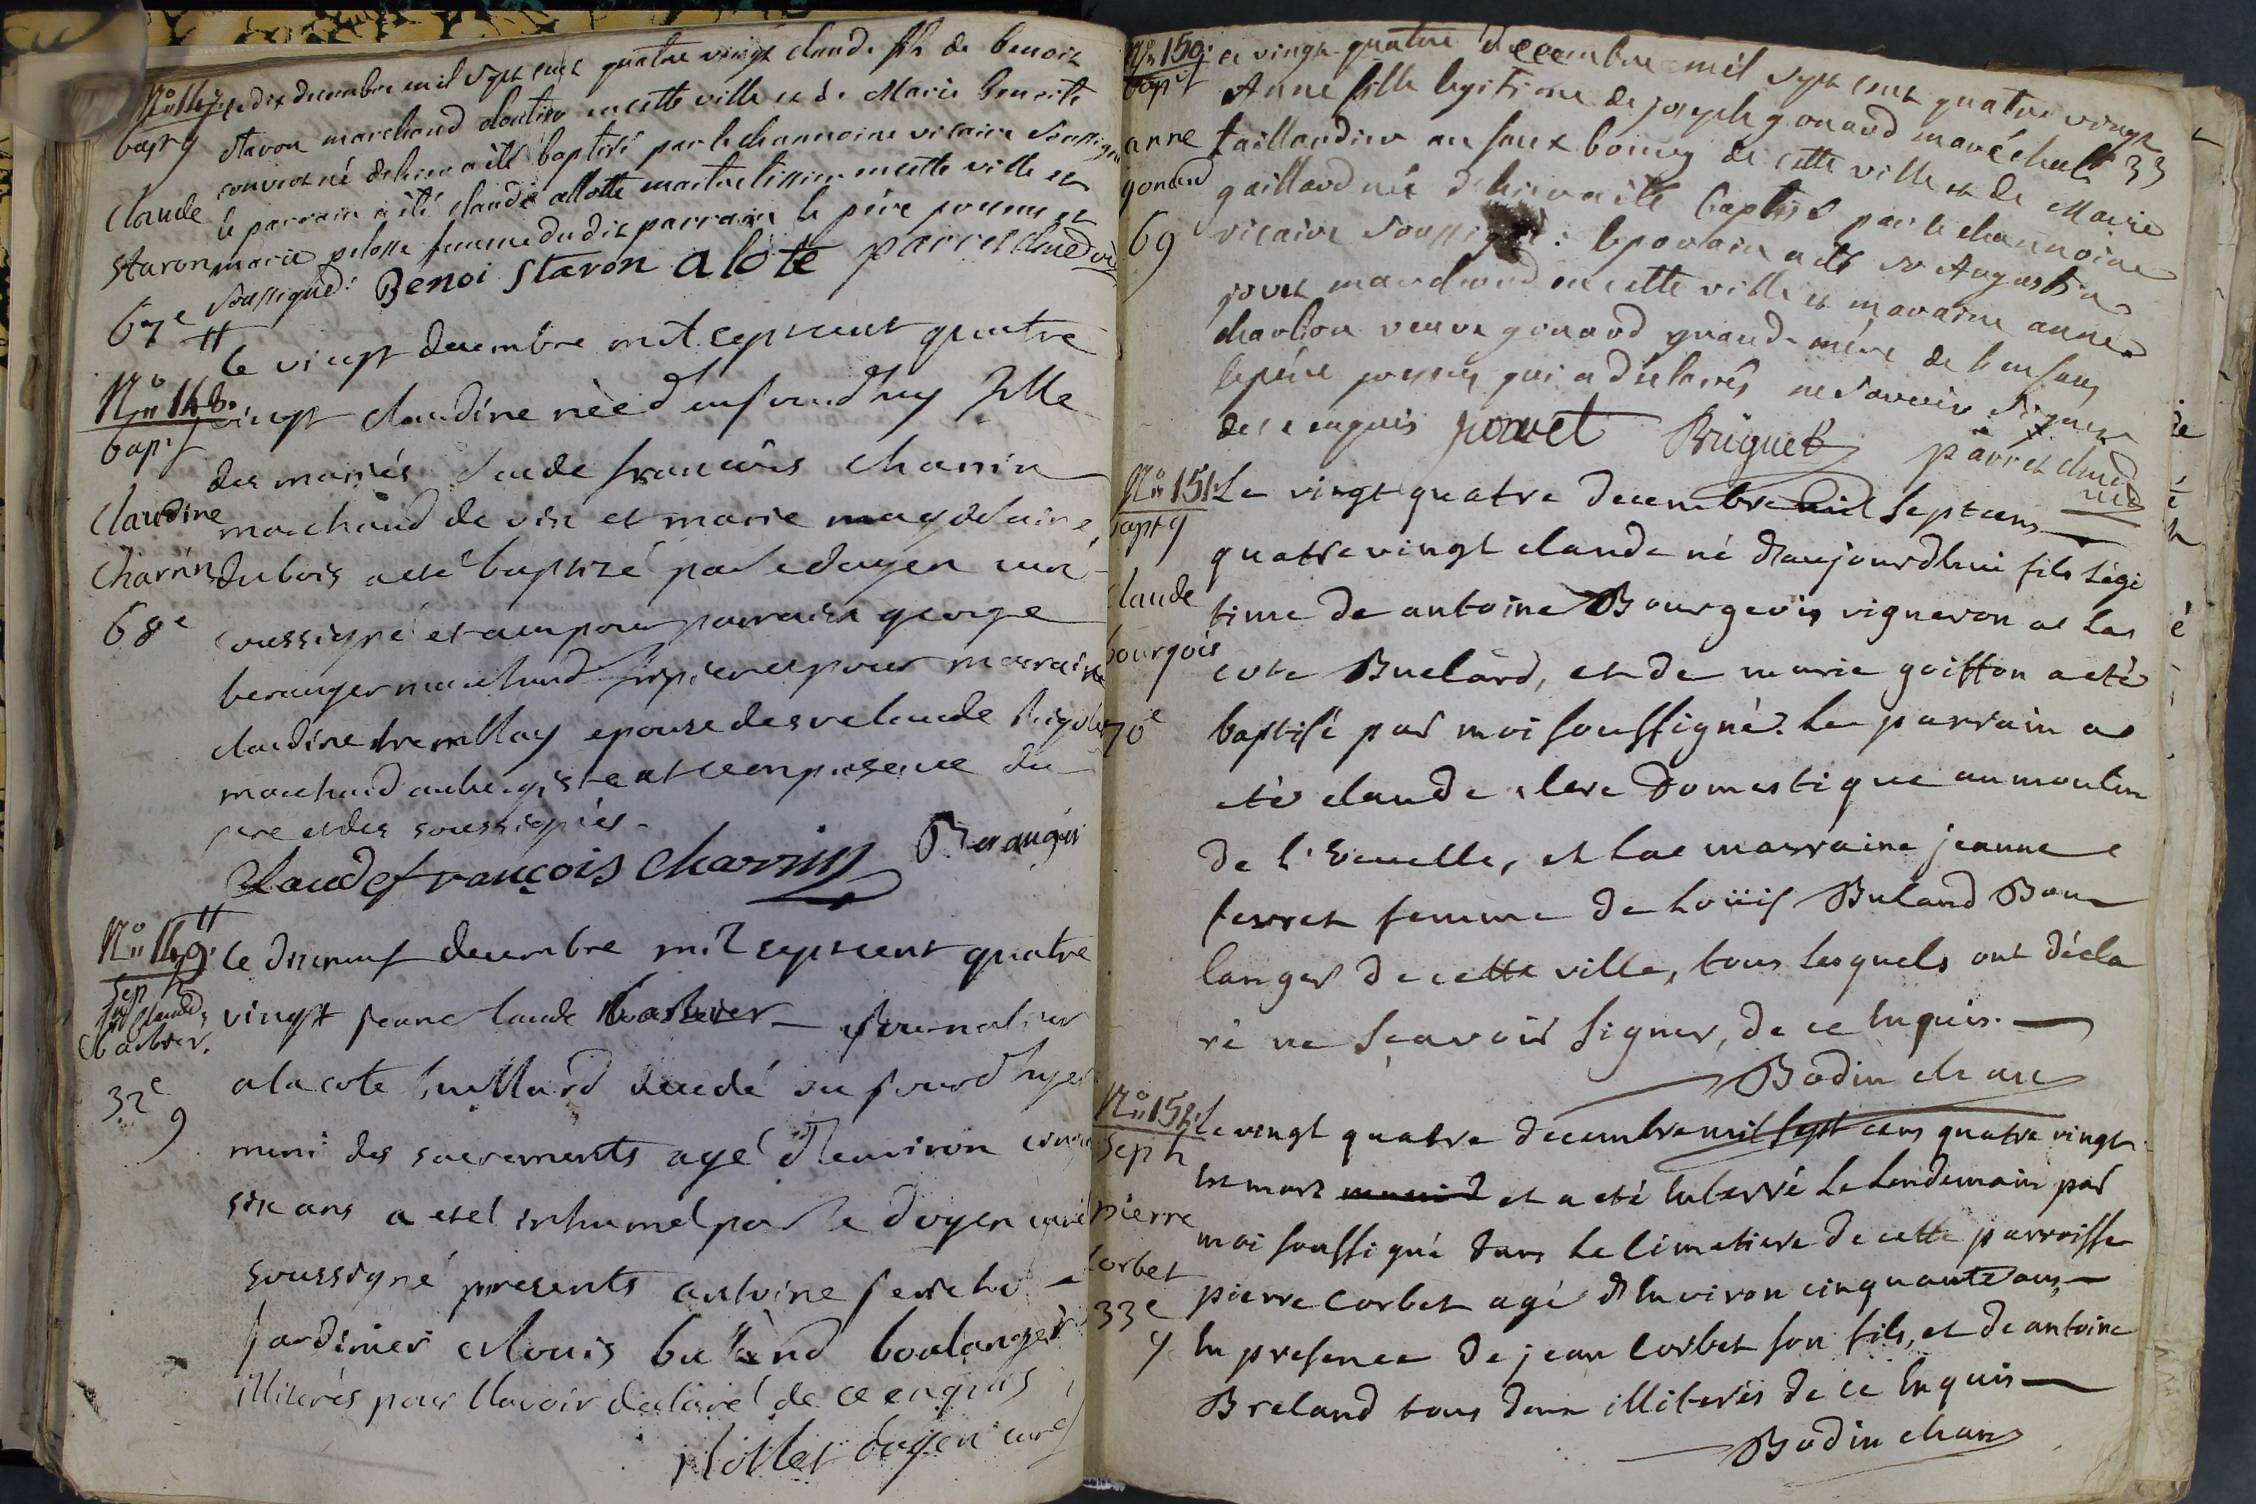 Nº 147. ce dix decembre mil sept cent quatre vingt claude fils de benoit
bapt staron marchand cloutier en cette ville et de Marie benoite
né d'hier a été baptisé par le chanoine vicaire soussigné
Claude le parrain a été claude allotte maitre tissier en cette ville et
staron marie pelosse femme dudit parrain le père present et
soussigné: Benoi staron alote parret chne vic
67e
le vingt decembre mil sept cent quatre
Nº 148. vingt claudine nèe d'aujourd'huy fille
bapt
des mariés claude françois charrin
Claudine marchand de vin et marie magdelaine
Charrin dubois a eté baptizé par le doyen curé
68e soussigné et a eu pour parrain george
beranger marchand fripier et pour marraine
claudine tremollay epouse de sr claude
marchand aubergiste et ce en presence du
pere et des soussignés.
Claude françois charrin Beranger
Nº 149. le dixneuf decembre mil sept cent quatre
Sep
jn claude vingt jean claude barbier journalier
barbier.
a la cote buillard decedé aujourd'huy
32e
muni des sacrements agé d'environ cinqu
six ans a eté inhumé par le doyen curé
soussigné presents antoine
jardinier et louis buland boulanger
illiterés pour l'avoir declaré de ce enquis
doyen curé
Nº 150. ce vingt quatre decembre mil sept cent quatre vingt
bapt Anne fille legitime de joseph gonard maréchal 33
anne taillandier au faux bourg de cette ville et de Marie
gonard gaillard née d'hier a été baptisé par le chanoine
69 vicaire soussigné: le parrain a été sr Augustin
jouvet marchand en cette ville et maraine anne
charbon veuve gonard grand-mère de l'enfant
le père present qui a déclarés ne savoir signer
de ce enquis jouvet Briguet parret chne
vic
Nº 151. Le vingt quatre decembre mil sept cens
bapt
quatre vingt claude né d'aujourdhui fils légi
claude time de antoine Bourgeois vigneron a la
bourgois cote Buelard, et de marie goiffon a eté
70e baptisé par moi soussigné. Le parrain a
eté claude clere Domestique au moulin
de l'Ecuelle, et la marraine jeanne
ferret femme de Loüis Buland Bou
langer de cette ville, tous lesquels ont décla
ré ne sçavoir signer, de ce Enquis.
Bodin chan
Nº 152. Le vingt quatre decembre mil sept cens quatre vingt
Seph Est mort muni et a eté Enterré Le Lendemain par
pierre moi soussigné dans Le Cimetiere de cette parroisse
Corbet pierre Corbet agé d'Environ cinquante ans
33e En presence de jean Corbet son fils, et de antoine
Breland tous deux illiterés de ce Enquis
Bodin chan